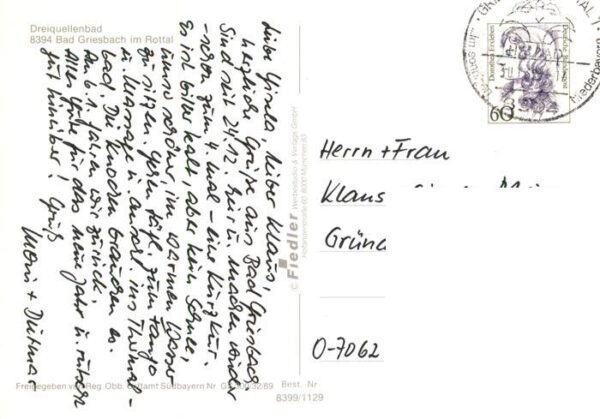 Dreiquellenbad
8394 Bad Griesbach im Rottal
Liebe Gisela, lieber Klaus,
herzliche Grüße aus Bad Griesbach.
Sind seit 24.12. hier u. machen wieder
- schon zum 4. mal - eine Kurzkur.
Es ist bitter kalt, aber kein Schnee,
umso schöner, im warmen Wasser
zu sitzen. Gehen tägl. zum Fango
u. Massage u. ins Thermal-
bad. Die Knochen brauchen es.
Am 6. Jan. fahren wir zurück.
Alles Gute für das neue Jahr u. rutscht
gut hinüber! Gruß
Moni + Dietmar
© Fiedler Werbestudio & Verlags GmbH
8000 München 83
Freigegeben von Reg. Obb. Luftamt Südbayern Nr. GS 300/32/89
Best. Nr
8399/1129
Dorothea Erxleben
Deutsche Bundespost
60
Niederbayern
Herrn + Frau
Klaus
Gründ
O-7062